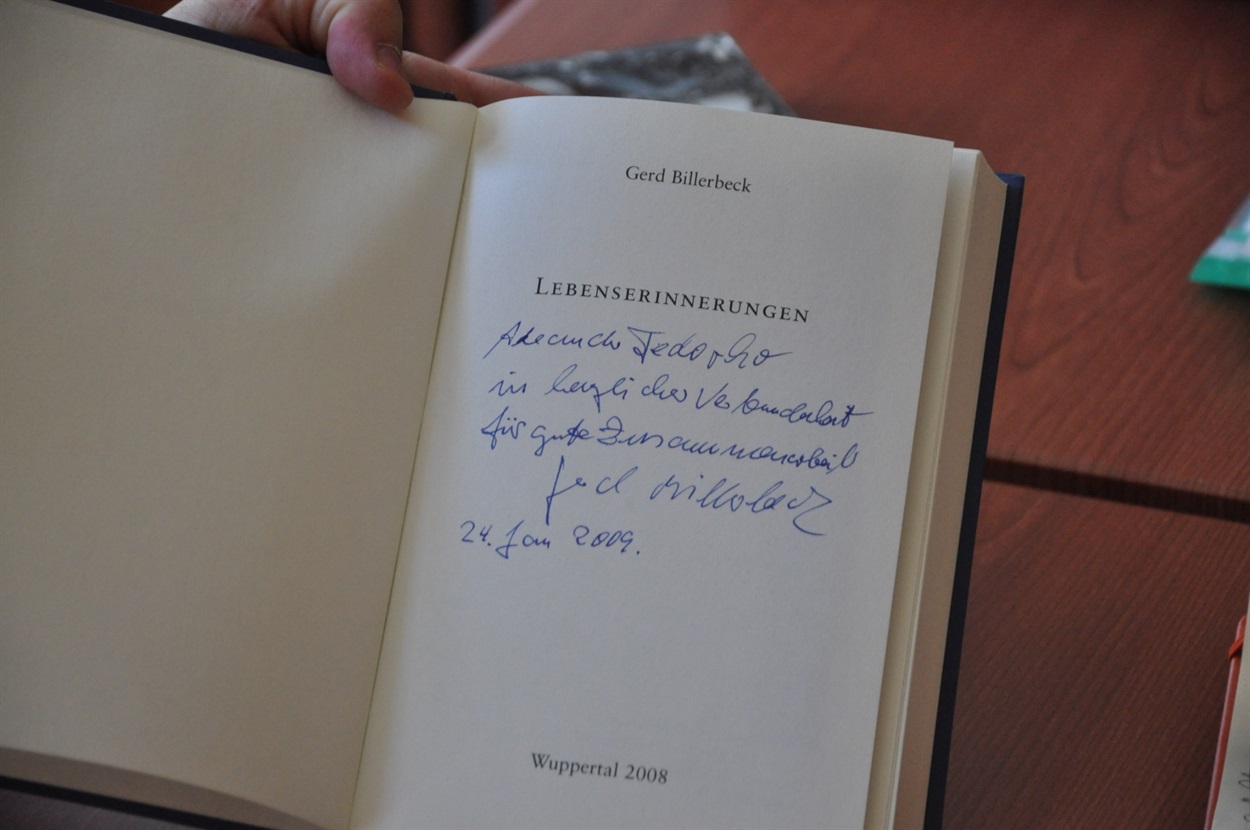 Gerd Billerbeck
LEBENSERINNERUNGEN
in herzlicher Verbundenheit
für gute Zusammenarbeit
Gerd Billerbeck
24. Jan 2009.
Wuppertal 2008